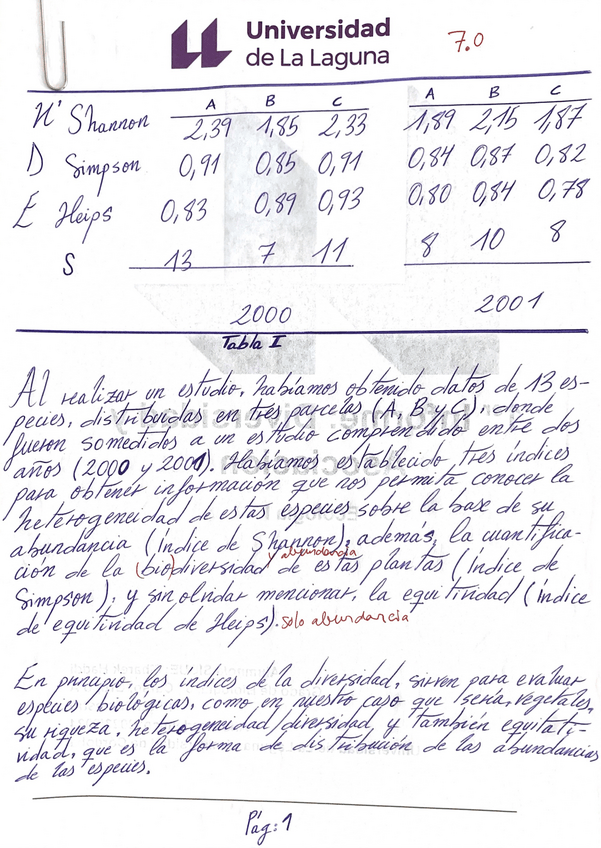 Universidad
de La Laguna
7.0
A B C A B C
H' Shannon 2,39 1,85 2,33 1,89 2,15 1,87
D Simpson 0,91 0,85 0,91 0,84 0,87 0,82
E Heips 0,83 0,89 0,93 0,80 0,84 0,78
S 13 7 11 8 10 8
2000 2001
Tabla I
Al realizar un estudio, habíamos obtenido datos de 13 es-
pecies, distribuidas en tres parcelas (A, B y C), donde
fueron sometidos a un estudio comprendido entre dos
años (2000 y 2001). Habíamos establecido tres índices
para obtener información que nos permita conocer la
heterogeneidad de estas especies sobre la base de su
abundancia (índice de Shannon); además, la cuantifica-
y abundancia
ción de la (bio)diversidad de estas plantas (índice de
Simpson); y sin olvidar mencionar, la equitividad (índice
de equitividad de Heips). solo abundancia
En principio, los índices de la diversidad, sirven para evaluar
especies biológicas, como en nuestro caso que sería, vegetales,
su riqueza, heterogeneidad/diversidad y también equitati-
vidad, que es la forma de distribución de las abundancias
de las especies.
Pág: 1